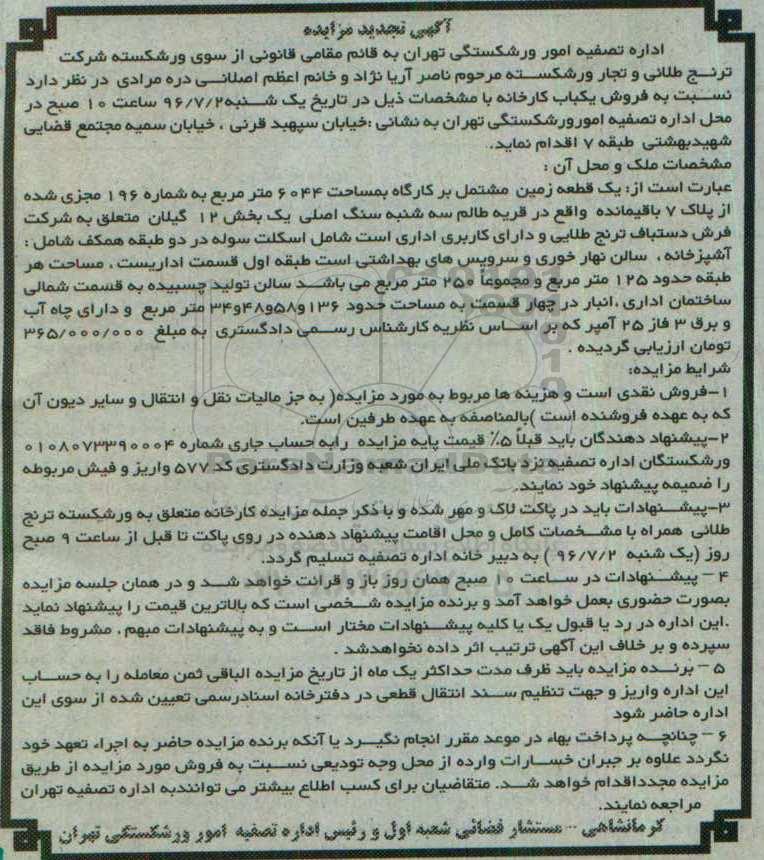 آگهی تجدید مزایده
اداره تصفیه امور ورشکستگی تهران به قائم مقامی قانونی از سوی ورشکسته شرکت
ترنج طلائی و تجار ورشکسته مرحوم ناصر آریا نژاد و خانم اعظم اصلانی دره مرادی در نظر دارد
نسبت به فروش یکباب کارخانه با مشخصات ذیل در تاریخ یک شنبه ۹۶/۷/۲ ساعت ۱۰ صبح در
محل اداره تصفیه امورورشکستگی تهران به نشانی :خیابان سپهبد قرنی ، خیابان سمیه مجتمع قضایی
شهیدبهشتی طبقه ۷ اقدام نماید.
مشخصات ملک و محل آن :
عبارت است از: یک قطعه زمین مشتمل بر کارگاه بمساحت ۶۰۴۴ متر مربع به شماره ۱۹۶ مجزی شده
از پلاک ۷ باقیمانده واقع در قریه طالم سه شنبه سنگ اصلی یک بخش ۱۲ گیلان متعلق به شرکت
فرش دستباف ترنج طلایی و دارای کاربری اداری است شامل اسکلت سوله در دو طبقه همکف شامل :
آشپزخانه ، سالن نهار خوری و سرویس های بهداشتی است طبقه اول قسمت اداریست . مساحت هر
طبقه حدود ۱۲۵ متر مربع و مجموعاً ۲۵۰ متر مربع می باشد سالن تولید چسبیده به قسمت شمالی
ساختمان اداری ،انبار در چهار قسمت به مساحت حدود ۱۳۶و۵۸و۴۸و۳۴ متر مربع و دارای چاه آب
و برق ۳ فاز ۲۵ آمپر که بر اساس نظریه کارشناس رسمی دادگستری به مبلغ ۳۶۵/۰۰۰/۰۰۰
تومان ارزیابی گردیده .
شرایط مزایده:
۱-فروش نقدی است و هزینه ها مربوط به مورد مزایده( به جز مالیات نقل و انتقال و سایر دیون آن
که به عهده فروشنده است )بالمناصفه به عهده طرفین است.
۲-پیشنهاد دهندگان باید قبلاً ۵٪ قیمت پایه مزایده رابه حساب جاری شماره ۰۱۰۸۰۷۳۳۹۰۰۰۴
ورشکستگان اداره تصفیه نزد بانک ملی ایران شعبه وزارت دادگستری کد ۵۷۷ واریز و فیش مربوطه
را ضمیمه پیشنهاد خود نمایند.
۳-پیشنهادات باید در پاکت لاک و مهر شده و با ذکر جمله مزایده کارخانه متعلق به ورشکسته ترنج
طلائی همراه با مشخصات کامل و محل اقامت پیشنهاد دهنده در روی پاکت تا قبل از ساعت ۹ صبح
روز (یک شنبه ۹۶/۷/۲ ) به دبیر خانه اداره تصفیه تسلیم گردد.
۴ – پیشنهادات در ساعت ۱۰ صبح همان روز باز و قرائت خواهد شد و در همان جلسه مزایده
بصورت حضوری بعمل خواهد آمد و برنده مزایده شخصی است که بالاترین قیمت را پیشنهاد نماید
.این اداره در رد یا قبول یک یا کلیه پیشنهادات مختار است و به پیشنهادات مبهم ، مشروط فاقد
سپرده و بر خلاف این آگهی ترتیب اثر داده نخواهدشد .
۵ – برنده مزایده باید ظرف مدت حداکثر یک ماه از تاریخ مزایده الباقی ثمن معامله را به حساب
این اداره واریز و جهت تنظیم سند انتقال قطعی در دفترخانه اسنادرسمی تعیین شده از سوی این
اداره حاضر شود
۶ – چنانچه پرداخت بهاء در موعد مقرر انجام نگیرد یا آنکه برنده مزایده حاضر به اجراء تعهد خود
نگردد علاوه بر جبران خسارات وارده از محل وجه تودیعی نسبت به فروش مورد مزایده از طریق
مزایده مجدداقدام خواهد شد. متقاضیان برای کسب اطلاع بیشتر می توانندبه اداره تصفیه تهران
مراجعه نمایند.
کرمانشاهی – مستشار قضائی شعبه اول و رئیس اداره تصفیه امور ورشکستگی تهران